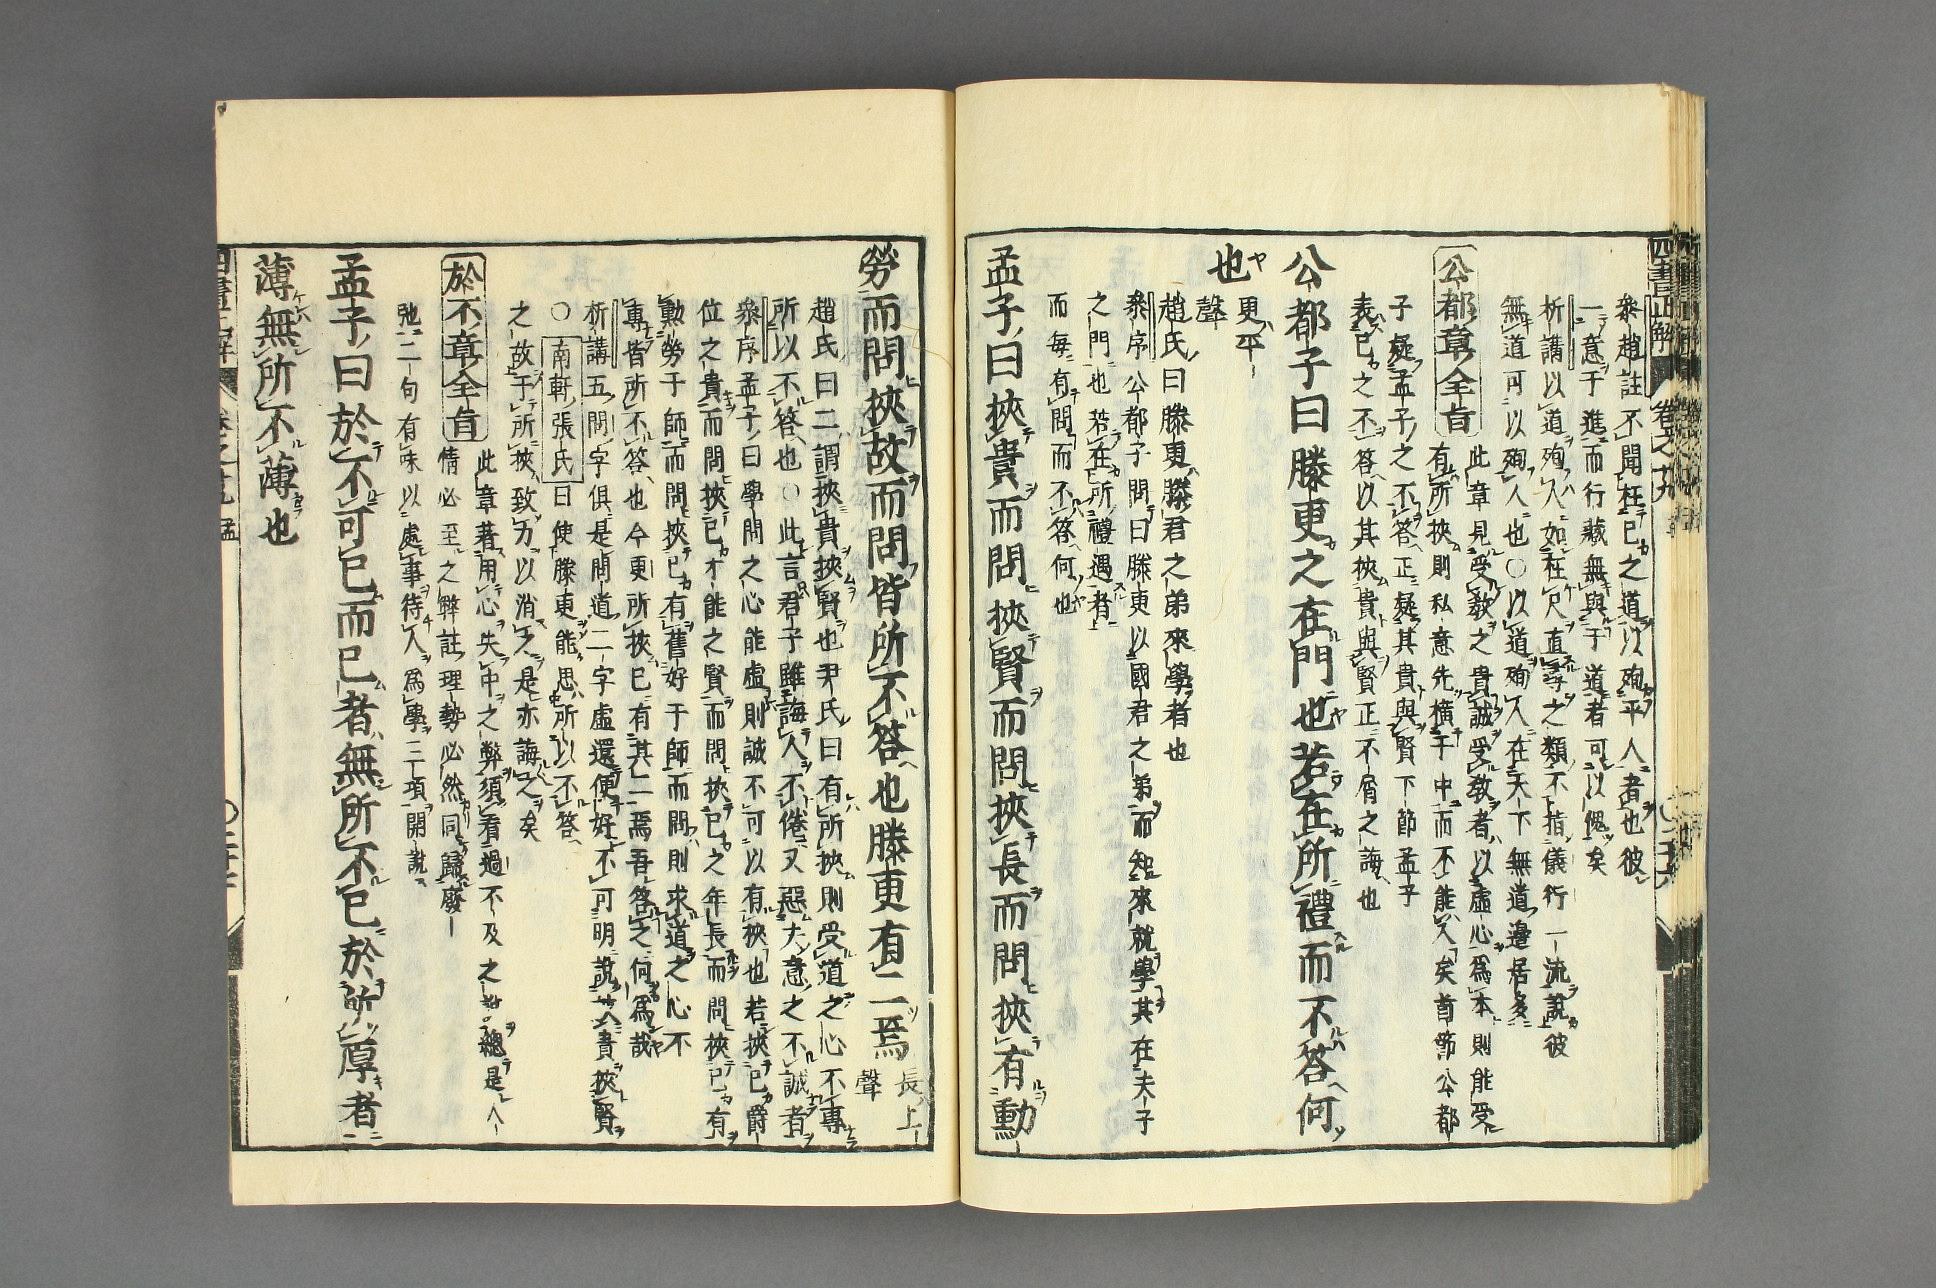 四書正解 卷之九
參趙註不聞枉已之道以殉平人者也彼
一意于進而行藏無與于道者可以愧矣
析講以道殉人如枉尺直尋之類不指儀行一流說彼
無道可以殉人也○以道殉人在天下無道邊居多
公都章全旨
此章見受教之貴誠受教者以虛心為本則能受
有所挾則私意先橫于中而不能入矣首節公都
子疑孟子之不答正疑其貴與賢下節孟子
表已之不答以其挾貴與賢正不屑之誨也
公都子曰滕更之在門也若在所禮而不答何
也
更平
聲
趙氏曰滕更滕君之弟來學者也
參序公都子問曰滕更以國君之弟而知來就學其在夫子
之門也若在所禮遇者
而每有問而不答何也
孟子曰挾貴而問挾賢而問挾長而問挾有勳
勞而問挾故而問皆所不答也滕更有二焉
長上
聲
趙氏曰二謂挾貴挾賢也尹氏曰有所挾則受道之心不專
所以不答也○此言君子雖誨人不倦又惡夫意之不誠者
參序孟子曰學問之心能虛則誠不可以有挾也若挾已爵
位之貴而問挾已才能之賢而問挾已之年長而問挾已有
勳勞于師而問挾已有舊好于師而問則求道之心不
專皆所不答也今更所挾已有其二焉吾答之何為哉
析講五問字俱是問道二字虛還便好不可明說＿貴挾賢
○南軒張氏曰使滕更能思所以不答
之故于所挾致力以消之是亦誨之矣
於不章全旨
此章著用心失中之弊須看過不及之＿總是人
情必至之弊註理勢必然同歸廢
弛二句有味以處事待人為學三項開說
孟子曰於不可已而已者無所不已於所厚者
薄無所不薄也